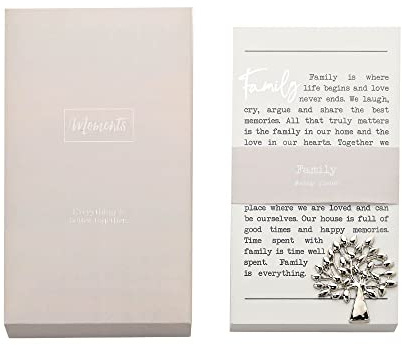 Moments
Everything is
better together
Family
Family is where
life begins and love
never ends. We laugh,
cry, argue and share the
best memories. All that truly matters
is the family in our home and the
love in our hearts. Together we
Family
place where we are loved and can
be ourselves. Our house is full of
good times and happy memories.
Time spent with
family is time well
spent. Family
is everything.